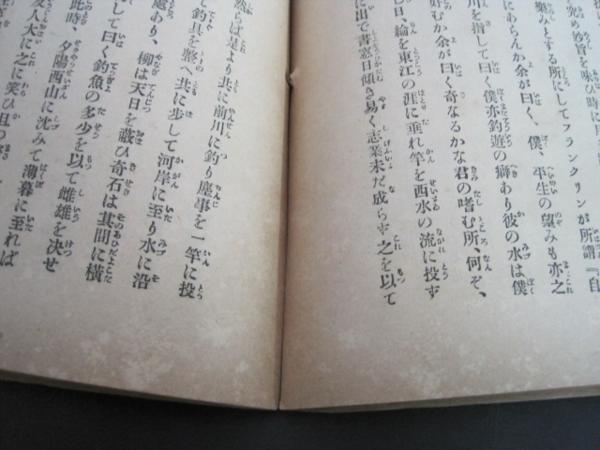 の妙旨を味ひ時に月
樂みとする所にしてフランクリンが所謂『自
にあらんか余が曰く、僕、平生の望みも亦之
川を指して曰く僕亦釣遊の癖あり彼の水は僕
好むか余が曰く奇なるかな君の嗜む所、何ぞ、
日、綸を東江の涯に垂れ竿を西水の流に投ず
に出で書窓日傾き易く志業未だ成らず之を以て
らば是より共に前川に釣り塵事を一竿に投
釣具を整へ共に步して河岸に至り水に沿
處あり、柳は天日を蔽ひ奇石は其間に橫
して曰く釣魚の多少を以て雌雄を決せ
此時、夕陽西山に沈みて薄暮に至れば
友人大に之に笑ひ且つ